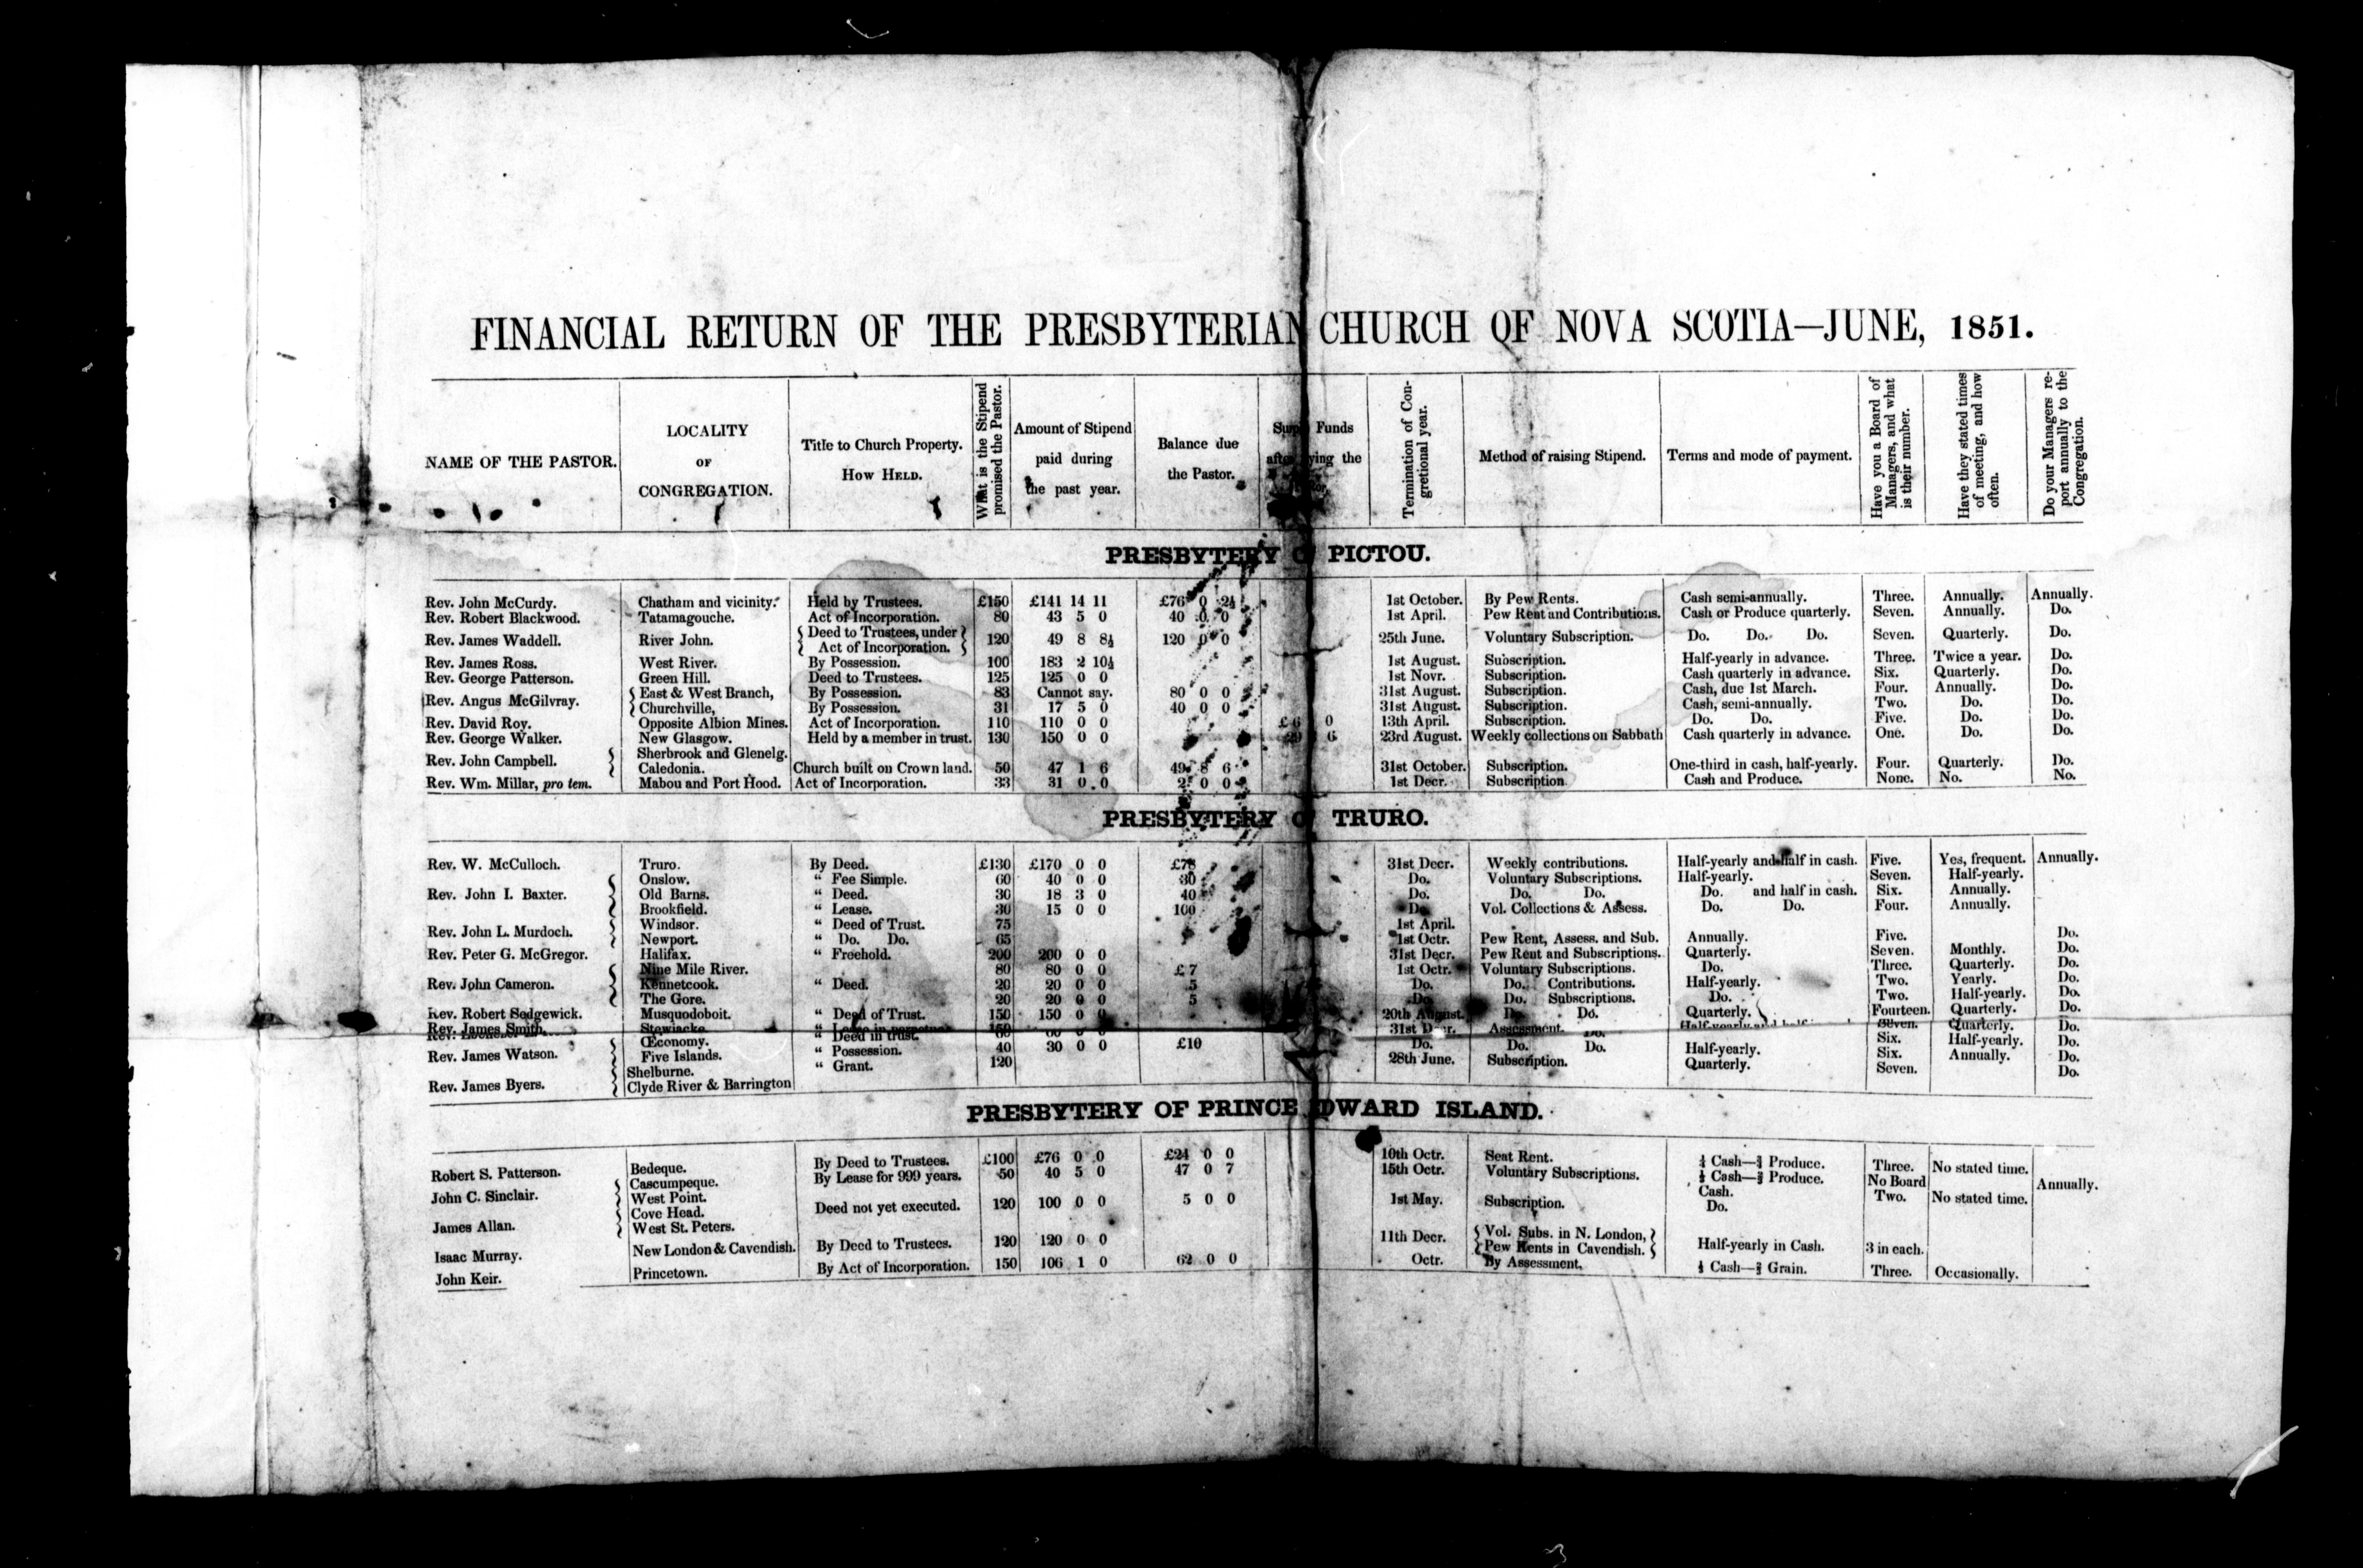 FINANCIAL RETURN OF THE PRESBYTERIAN CHURCH OF NOVA SCOTIA—JUNE, 1851.
NAME OF THE PASTOR.
LOCALITY
OF
CONGREGATION.
Title to Church Property.
How Held.
What is the Stipend
promised the Pastor.
Amount of Stipend
paid during
the past year.
Balance due
the Pastor.
Funds
the
Termination of Con-
gretional year.
Method of raising Stipend.
Terms and mode of payment.
Have you a Board of
Managers, and what
is their number.
Have they stated times
of meeting, and how
often.
Do your Managers re-
port annually to the
Congregation.
PRESBYTERY OF PICTOU.
Rev. John McCurdy. Chatham and vicinity. Held by Trustees. £150 £141 14 11 £76 0 2½ 1st October. By Pew Rents. Cash semi-annually. Three. Annually. Annually.
Rev. Robert Blackwood. Tatamagouche. Act of Incorporation. 80 43 5 0 40 0 0 1st April. Pew Rent and Contributions. Cash or Produce quarterly. Seven. Annually. Do.
Rev. James Waddell. River John. { Deed to Trustees, under } Act of Incorporation. 120 49 8 8½ 120 0 0 25th June. Voluntary Subscription. Do. Do. Do. Seven. Quarterly. Do.
Rev. James Ross. West River. By Possession. 100 183 2 10½ 1st August. Subscription. Half-yearly in advance. Three. Twice a year. Do.
Rev. George Patterson. Green Hill. Deed to Trustees. 125 125 0 0 1st Novr. Subscription. Cash quarterly in advance. Six. Quarterly. Do.
Rev. Angus McGilvray. { East & West Branch, By Possession. 83 Cannot say. 80 0 0 31st August. Subscription. Cash, due 1st March. Four. Annually. Do.
Churchville, By Possession. 31 17 5 0 40 0 0 31st August. Subscription. Cash, semi-annually. Two. Do. Do.
Rev. David Roy. Opposite Albion Mines. Act of Incorporation. 110 110 0 0 £6 0 13th April. Subscription. Do. Do. Five. Do. Do.
Rev. George Walker. New Glasgow. Held by a member in trust. 130 150 0 0 6 23rd August. Weekly collections on Sabbath Cash quarterly in advance. One. Do. Do.
Rev. John Campbell. { Sherbrook and Glenelg.
Caledonia. Church built on Crown land. 50 47 1 6 49 8 6 31st October. Subscription. One-third in cash, half-yearly. Four. Quarterly. Do.
Rev. Wm. Millar, pro tem. Mabou and Port Hood. Act of Incorporation. 33 31 0 0 2 0 0 1st Decr. Subscription Cash and Produce. None. No. No.
PRESBYTERY OF TRURO.
Rev. W. McCulloch. Truro. By Deed. £130 £170 0 0 £78 31st Decr. Weekly contributions. Half-yearly and half in cash. Five. Yes, frequent. Annually.
Rev. John I. Baxter. { Onslow. “ Fee Simple. 60 40 0 0 30 Do. Voluntary Subscriptions. Half-yearly. Seven. Half-yearly.
Old Barns. “ Deed. 30 18 3 0 40 Do. Do. Do. Do. and half in cash. Six. Annually.
Brookfield. “ Lease. 30 15 0 0 100 Do. Vol. Collections & Assess. Do. Do. Four. Annually.
Rev. John L. Murdoch. { Windsor. “ Deed of Trust. 75 1st April.
Newport. “ Do. Do. 65 1st Octr. Pew Rent, Assess. and Sub. Annually. Five. Do.
Rev. Peter G. McGregor. Halifax. “ Freehold. 200 200 0 0 31st Decr. Pew Rent and Subscriptions. Quarterly. Seven. Monthly. Do.
Rev. John Cameron. { Nine Mile River. 80 80 0 0 £7 1st Octr. Voluntary Subscriptions. Do. Three. Quarterly. Do.
Kennetcook. “ Deed. 20 20 0 0 5 Do. Do. Contributions. Half-yearly. Two. Yearly. Do.
The Gore. 20 20 0 0 5 Do. Do. Subscriptions. Do. Two. Half-yearly. Do.
Rev. Robert Sedgewick. Musquodoboit. “ Deed of Trust. 150 150 0 0 20th August. Do. Do. Quarterly. Fourteen. Quarterly. Do.
Rev. James Smith. Stewiacke. 150 31st Assessment. Seven. Quarterly. Do.
Rev. James Watson. { Œconomy. “ Deed in trust. 60 Do. Do. Do. Half-yearly. Six. Half-yearly. Do.
Five Islands. “ Possession. 40 30 0 0 £10 28th June. Subscription. Quarterly. Six. Annually. Do.
Rev. James Byers. { Shelburne. “ Grant. 120 Seven. Do.
Clyde River & Barrington
PRESBYTERY OF PRINCE EDWARD ISLAND.
Robert S. Patterson. Bedeque. By Deed to Trustees. £100 £76 0 0 £24 0 0 10th Octr. Seat Rent. Cash— Produce. Three. No stated time.
John C. Sinclair. { Cascumpeque. By Lease for 999 years. 50 40 5 0 47 0 7 15th Octr. Voluntary Subscriptions. Cash— Produce. No Board Annually.
West Point. Cash.
James Allan. { Cove Head. Deed not yet executed. 120 100 0 0 5 0 0 1st May. Subscription. Do. Two. No stated time.
West St. Peters.
Isaac Murray. New London & Cavendish. By Deed to Trustees. 120 120 0 0 11th Decr. { Vol. Subs. in N. London, } Pew Rents in Cavendish. Half-yearly in Cash. 3 in each.
John Keir. Princetown. By Act of Incorporation. 150 106 1 0 62 0 0 Octr. By Assessment. Cash— Grain. Three. Occasionally.